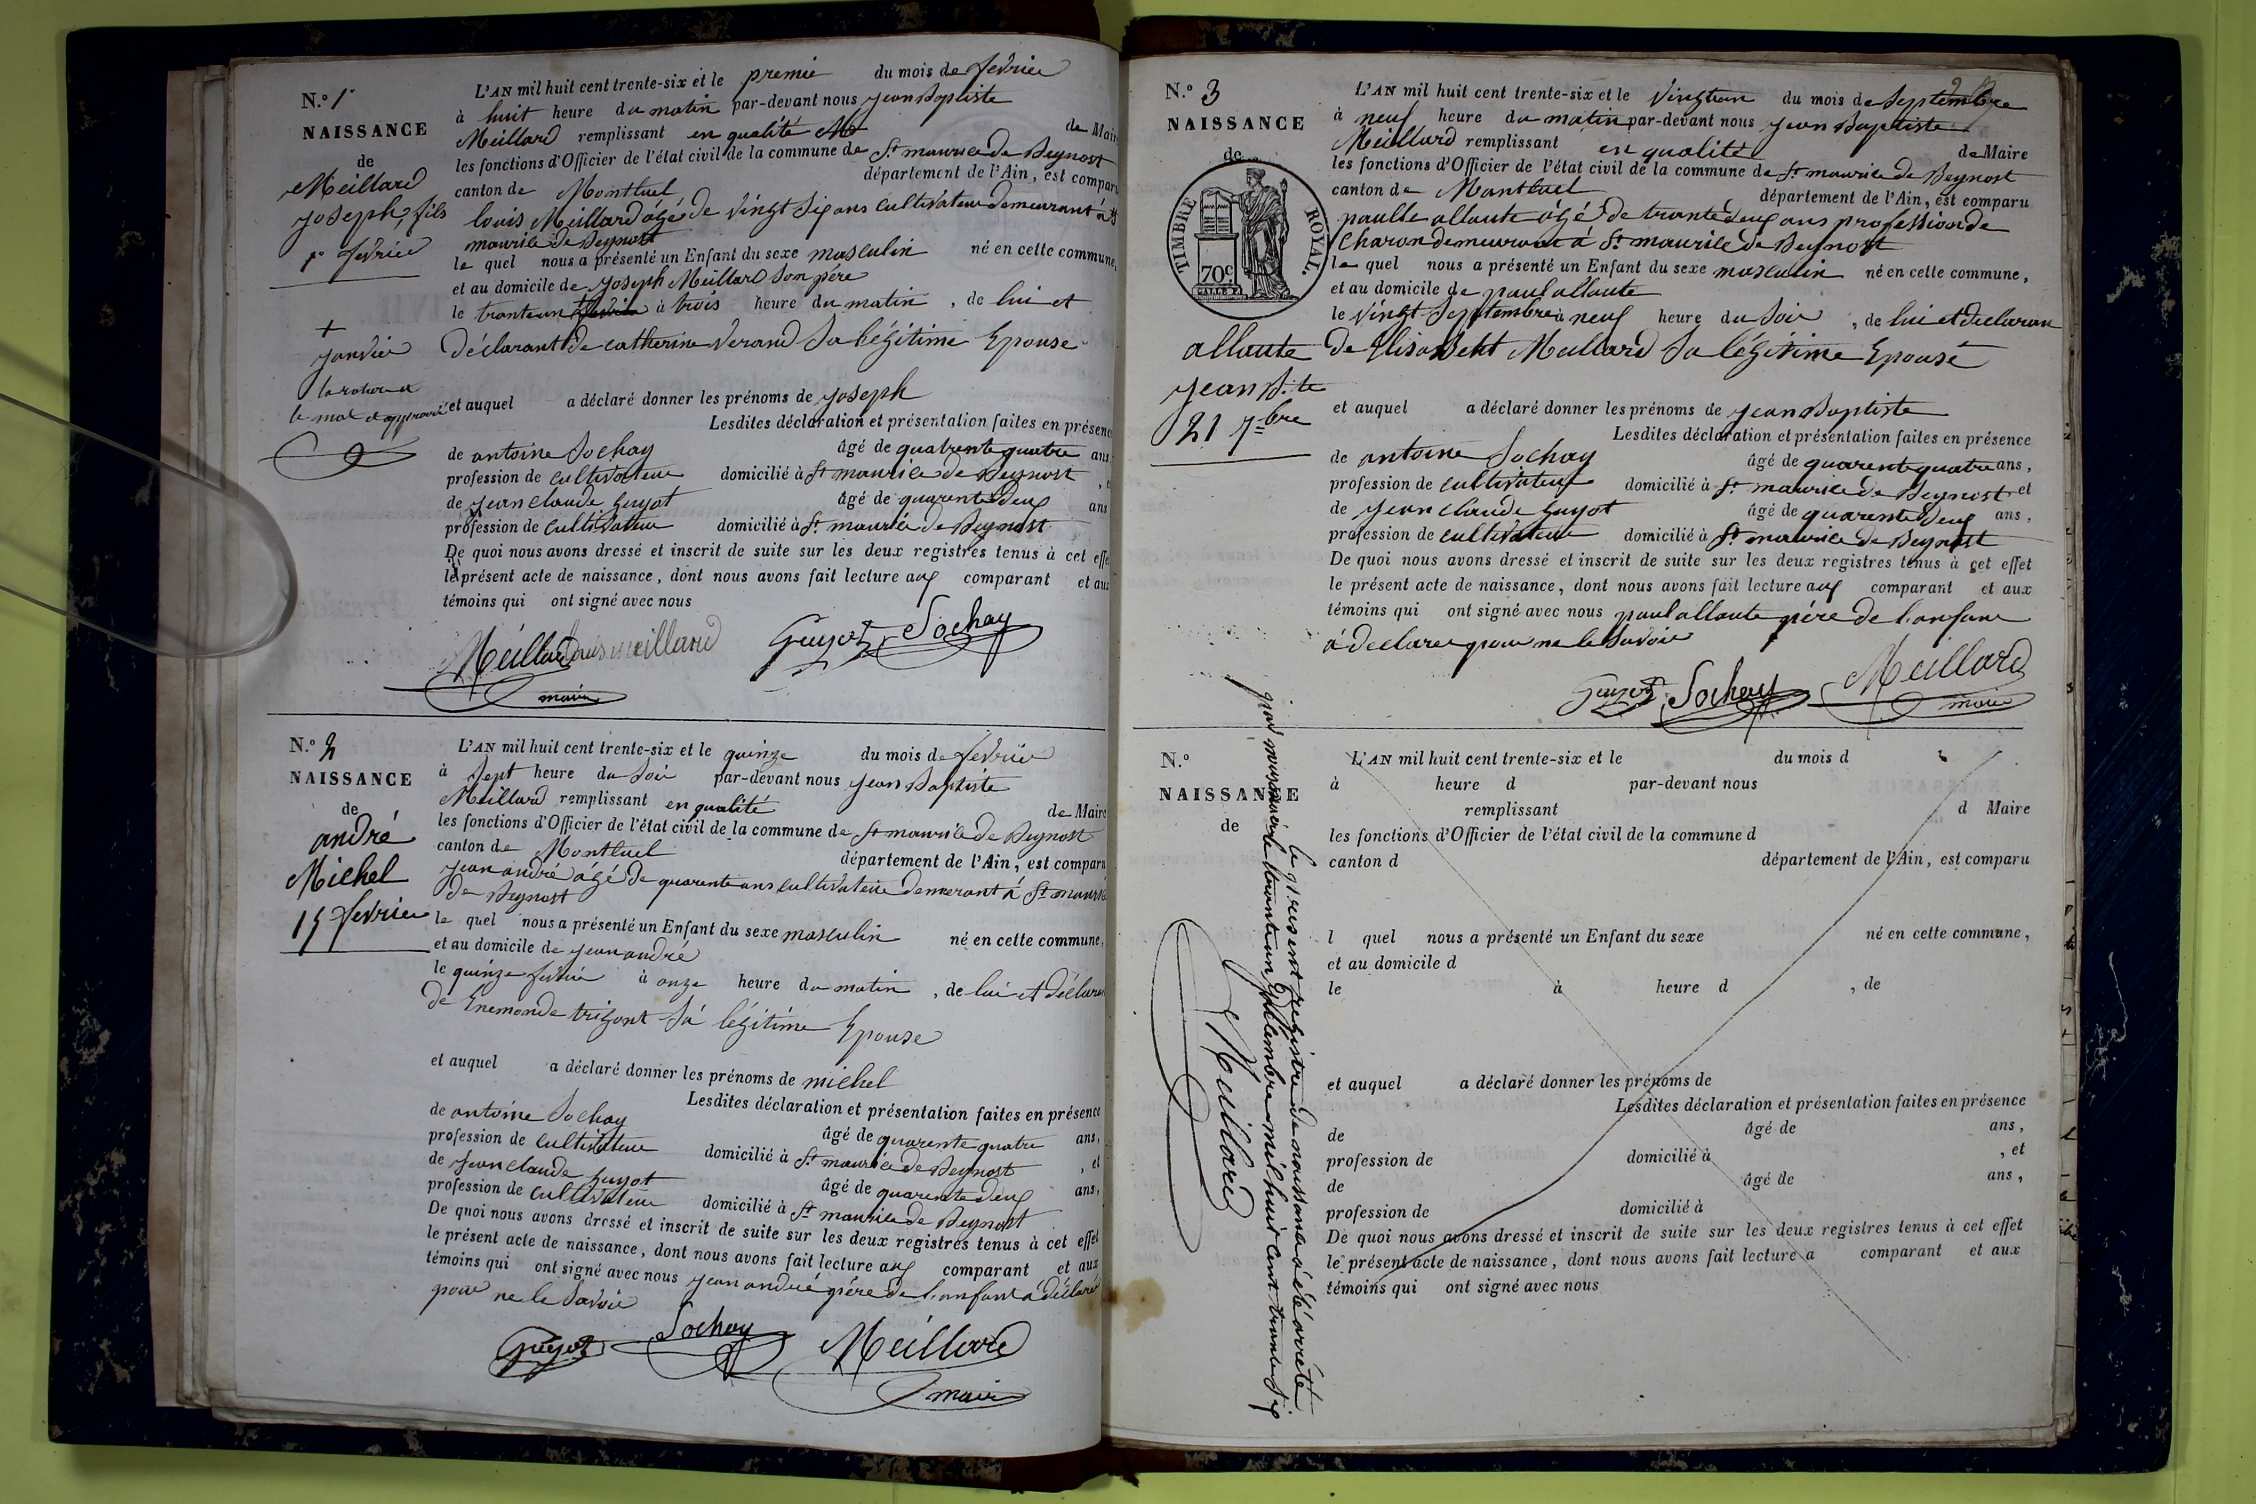 N.o 1r
NAISSANCE
de
Meillard
joseph, fils
1r fevrier
+
janvier
la rature et
le mot approuvé
L'AN mil huit cent trente-six et le premie du mois de fevrier
à huit heure du matin par-devant nous jean Baptiste
Meillard remplissant en qualité de Maire
les fonctions d'Officier de l'état civil de la commune de St maurice de Beynost
canton de Montluel département de l'Ain, est comparu
louis Meillard âgé de vingt six ans cultivateur demeurant à St
maurice de Beynost
le quel nous a présenté un Enfant du sexe masculin né en cette commune,
et au domicile de joseph Meillard son père
le tranteun + à trois heure du matin, de lui et
déclarant de catherine verand Sa légitime Epouse
et auquel a déclaré donner les prénoms de joseph
Lesdites déclaration et présentation faites en présence
de antoine Sochay âgé de quatrente quatre ans
profession de cultivateur domicilié à St maurice de Beynost
de jean claude guyot âgé de quarente deux ans
profession de cultivateur domicilié à St maurice de Beynost
De quoi nous avons dressé et inscrit de suite sur les deux registres tenus à cet effet
le présent acte de naissance, dont nous avons fait lecture aux comparant et aux
témoins qui ont signé avec nous
Meillard louis meillard Guyot Sochay
maire
N.o 2
NAISSANCE
de
andré
Michel
15 fevrier
L'AN mil huit cent trente-six et le quinze du mois de fevrier
à Sept heure du Soir par-devant nous jean Baptiste
Meillard remplissant en qualité de Maire
les fonctions d'Officier de l'état civil de la commune de St maurice de Beynost
canton de Montluel département de l'Ain, est comparu
jean andré agé de quarente ans cultivateur demerant à St maurice
de Beynost
le quel nous a présenté un Enfant du sexe masculin né en cette commune,
et au domicile de jean andré
le quinze fevrier à onze heure du matin, de lui et déclarant
de Enemonde trizont Sa légitime Epouse
et auquel a déclaré donner les prénoms de michel
Lesdites déclaration et présentation faites en présence
de antoine Sochay âgé de quarente quatre ans,
profession de cultivateur domicilié à St maurice de Beynost, et
de jean claude guyot âgé de quarente deux ans,
profession de cultivateur domicilié à St maurice de Beynost
De quoi nous avons dressé et inscrit de suite sur les deux registres tenus à cet effet
le présent acte de naissance, dont nous avons fait lecture aux comparant et aux
témoins qui ont signé avec nous jean andré père de l'anfant à déclaré
pour ne le Savoir
Guyot Sochay Meillard
maire
N.o 3
NAISSANCE
de
TIMBRE ROYAL.
70c
allaute
jean B.te
21 7=bre
L'AN mil huit cent trente-six et le vingtun du mois de Septembre
à neuf heure du matin par-devant nous jean Baptiste
Meillard remplissant en qualité de Maire
les fonctions d'Officier de l'état civil de la commune de St maurice de Beynost
canton de Montluel département de l'Ain, est comparu
paulle allaute âgé de trante deux ans profession de
Charon demeurant à St maurice de Beynost
le quel nous a présenté un Enfant du sexe masculin né en cette commune,
et au domicile de paul allaute
le vingt Septembre à neuf heure du Soir, de lui et declaran
de Elisabeht Meillard Sa légitime Epouse
et auquel a déclaré donner les prénoms de jean Baptiste
Lesdites déclaration et présentation faites en présence
de antoine Sochay âgé de quarente quatre ans,
profession de cultivateur domicilié à St maurice de Beynost et
de jean claude guyot âgé de quarente deux ans,
profession de cultivateur domicilié à St maurice de Beynost
De quoi nous avons dressé et inscrit de suite sur les deux registres tenus à cet effet
le présent acte de naissance, dont nous avons fait lecture aux comparant et aux
témoins qui ont signé avec nous paul allaute père de l'anfant
à declarer pour ne le Savoir
Guyot Sochay Meillard
maire
N.o
NAISSANCE
de
L'AN mil huit cent trente-six et le du mois d
à heure d par-devant nous
remplissant d Maire
les fonctions d'Officier de l'état civil de la commune d
canton d département de l'Ain, est comparu
l quel nous a présenté un Enfant du sexe né en cette commune,
et au domicile d
le à heure d , de
et auquel a déclaré donner les prénoms de
Lesdites déclaration et présentation faites en présence
de âgé de ans,
profession de domicilié à , et
de âgé de ans,
profession de domicilié à
De quoi nous avons dressé et inscrit de suite sur les deux registres tenus à cet effet
le présent acte de naissance, dont nous avons fait lecture a comparant et aux
témoins qui ont signé avec nous
le présent registre de naissance a été arrété
par nous maire le tranteun décembre mil huit cent trante Six
Meillard